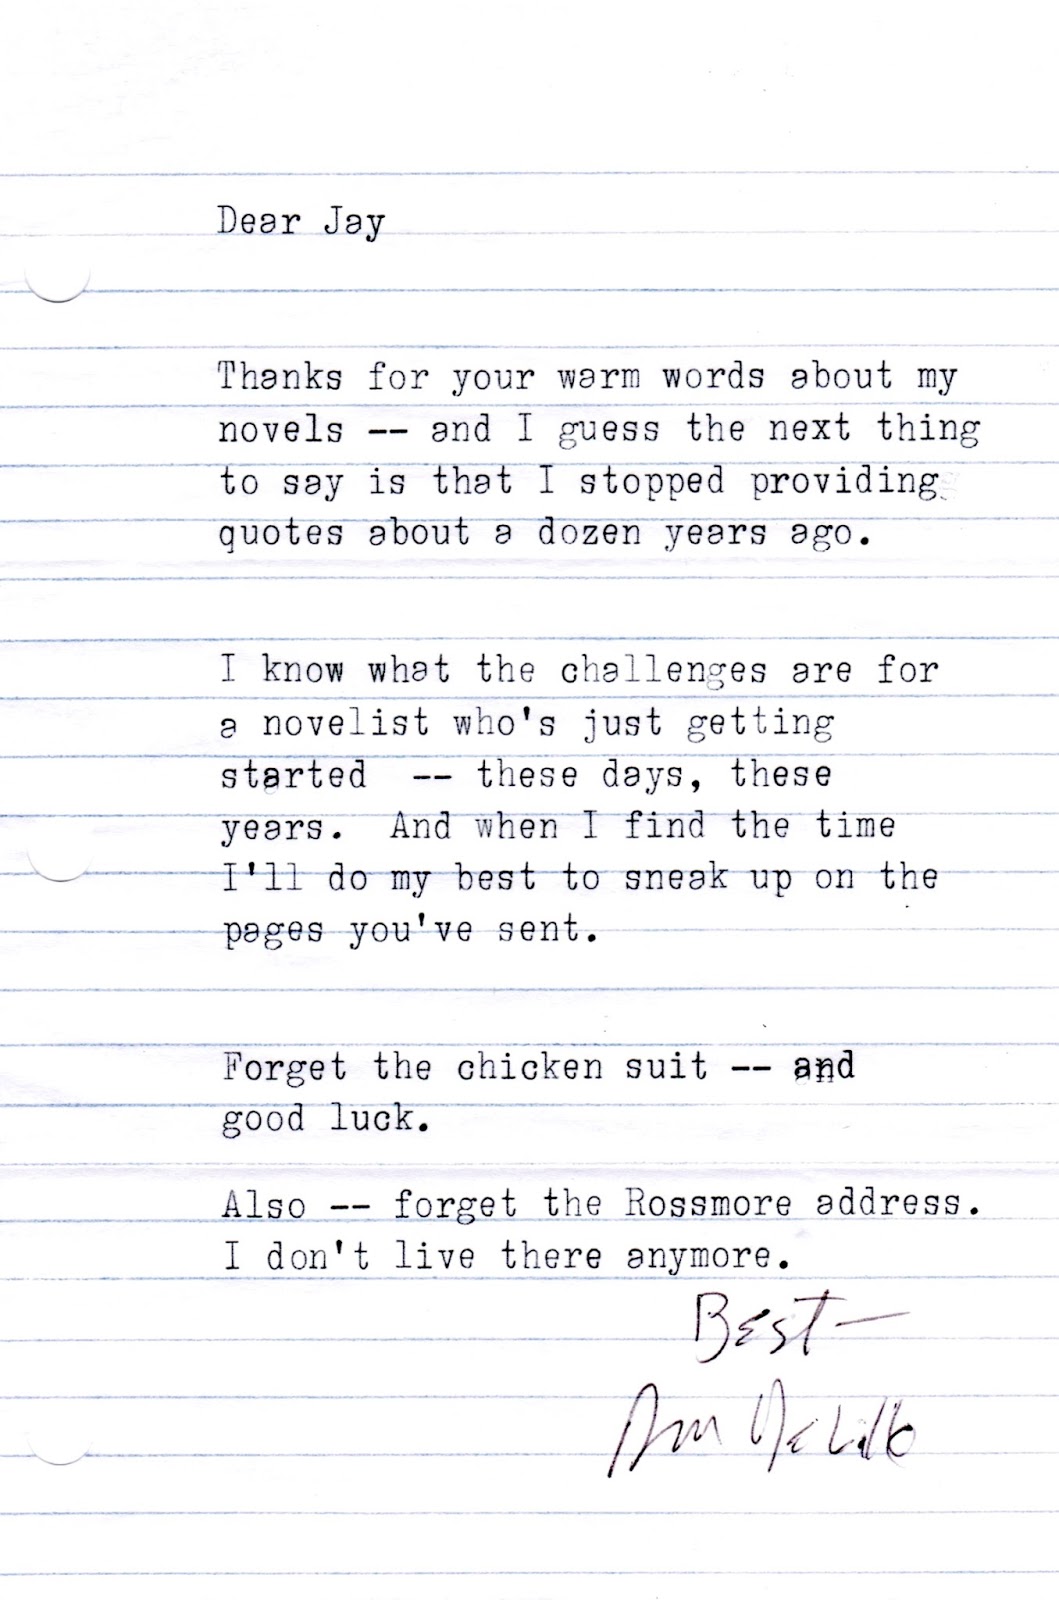 Dear Jay
Thanks for your warm words about my
novels -- and I guess the next thing
to say is that I stopped providing
quotes about a dozen years ago.
I know what the challenges are for
a novelist who's just getting
started  -- these days, these
years.  And when I find the time
I'll do my best to sneak up on the
pages you've sent.
Forget the chicken suit -- and
good luck.
Also -- forget the Rossmore address.
I don't live there anymore.
Best—
Don DeLillo